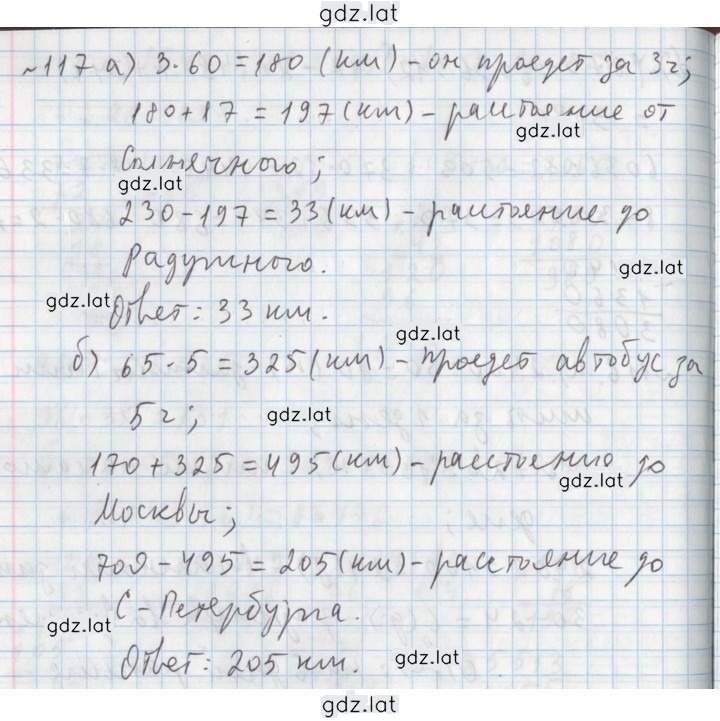 gdz.lat
№117 а) 3·60=180 (км) - он проедет за 3ч;
180+17 = 197(км) - расстояние от
gdz.lat
Солнечного;
gdz.lat
230-197=33(км) - расстояние до
Радужного.
gdz.lat
gdz.lat
Ответ: 33 км.
gdz.lat
б) 65·5=325(км) - проедет автобус за
5ч;
gdz.lat
170+325=495(км) - расстояние до
gdz.lat
Москвы;
700-495=205(км) - расстояние до
С-Петербурга.
gdz.lat
Ответ: 205 км.
gdz.lat
gdz.lat